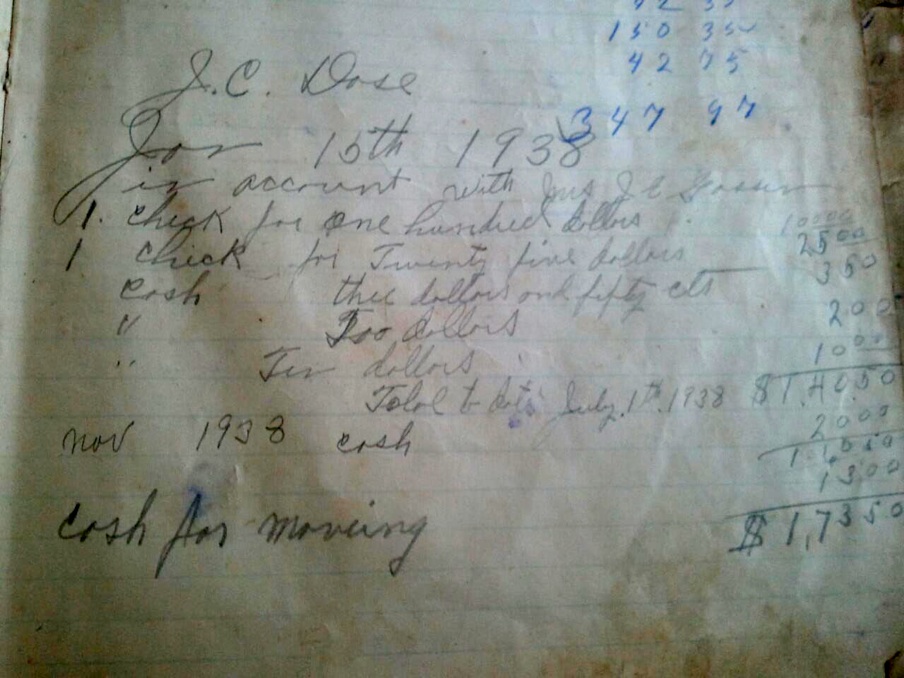 150 35
42 75
347 97
J.C. Dose
Jan 15th 1938
in account with Mrs J C
1. check for one hundred dollars 10000
1 check for Twenty five dollars 2500
cash thee dollars and fifty cts 350
" Too dollars 200
" Ten dollars 1000
Total to date July. 1th. 1938 $1,40.50
nov 1938 cash 2000
1,6050
1300
cash for moveing $1,7350